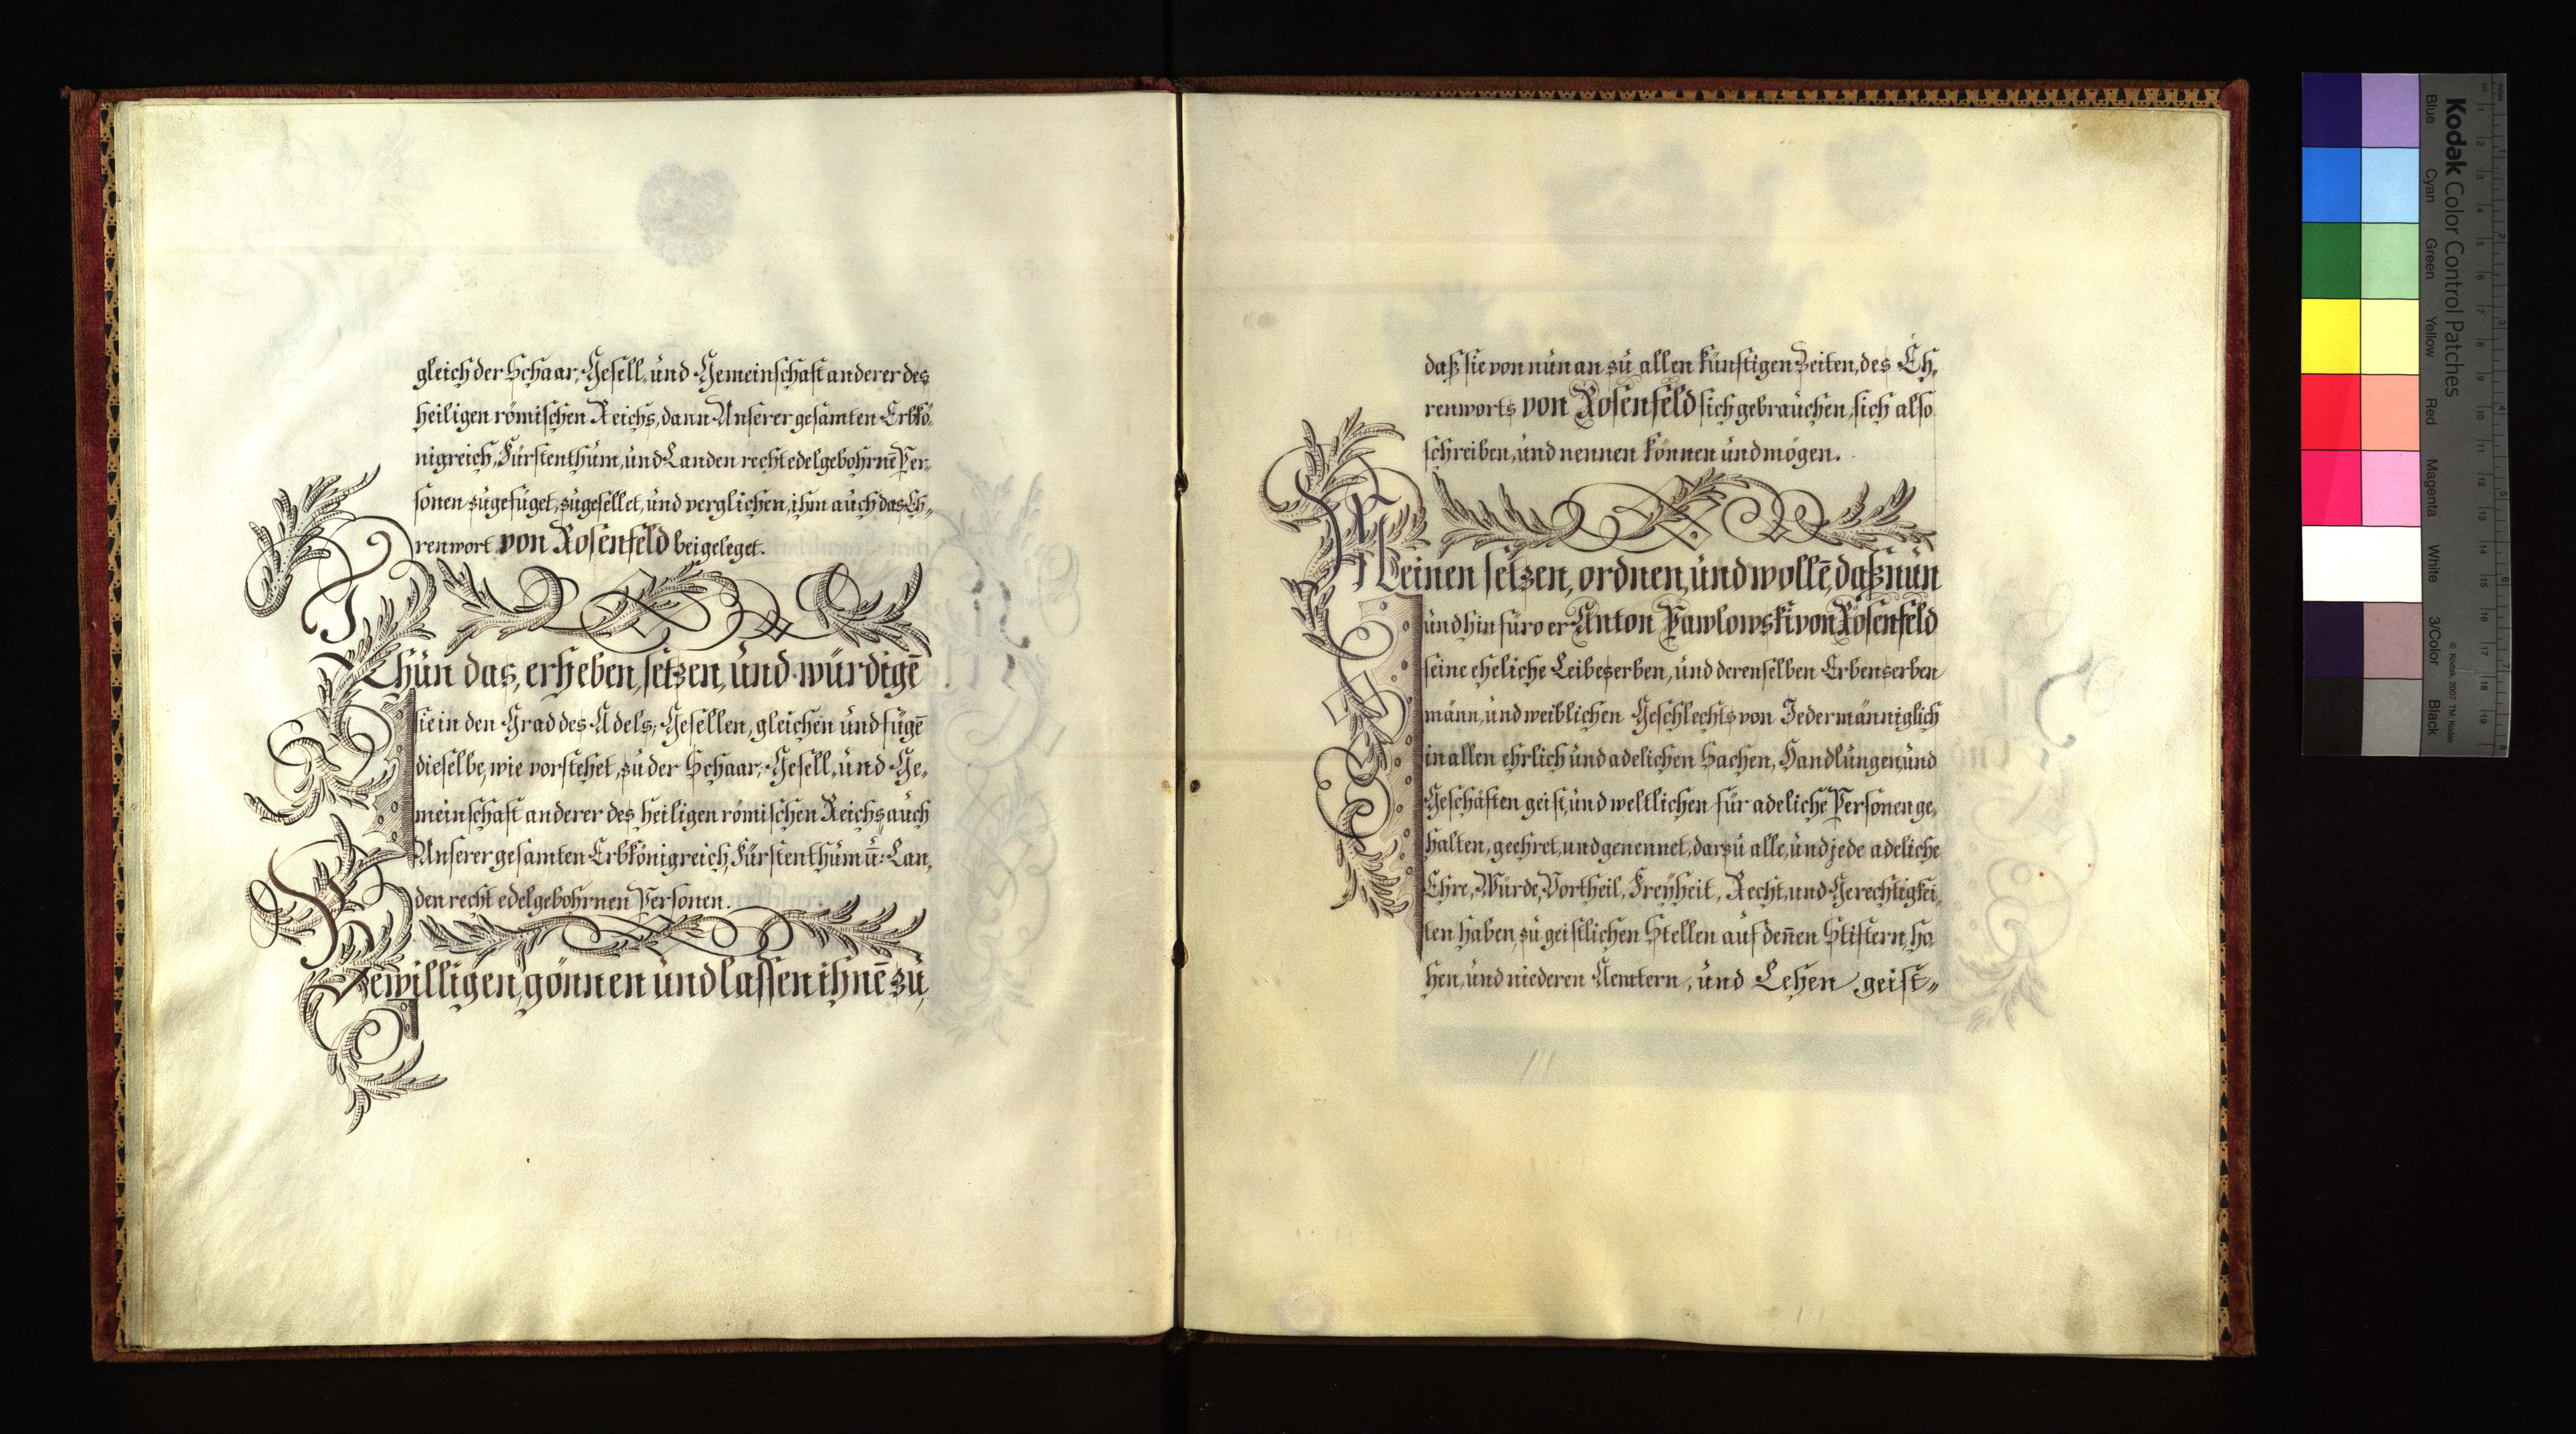 gleich der Schaar, Gesell, und Gemeinschaft anderer des
heiligen römischen Reichs, dann Unserer gesamten Erbkö-
nigreich, Fürstenthum, und Landen recht edelgebohrnē Per-
sonen zugefüget, zugesellet, und verglichen, ihm auch das Eh-
renwort von Rosenfeld beigeleget.
Thun das, erheben, setzen, und würdigē
sie in den Grad des Adels, Gesellen, gleichen und fügē
dieselbe, wie vorstehet, zu der Schaar, Gesell, und Ge-
meinschaft anderer des heiligen römischen Reichs, auch
Unserer gesamten Erbkönigreich, Fürstenthum ū: Lan-
den recht edelgebohrnen Personen.
Bewilligen, gönnen und lassen ihnē zu,
daß sie von nun an zu allen künftigen Zeiten, des Eh-
renworts von Rosenfeld sich gebrauchen, sich also
schreiben, und nennen können und mögen.
Meinen setzen, ordnen, und wollē, daß nun
und hinfüro er Anton Pawlowski von Rosenfeld
seine eheliche Leibeserben, und derenselben Erbenserben
männ, und weiblichen Geschlechts von Jedermänniglich
in allen ehrlich und adelichen Sachen, Handlungen, und
Geschäften geist, und weltlichen für adeliche Personen ge-
halten, geehret, und genennet, darzu alle, und jede adeliche
Ehre, Würde, Vortheil, Freÿheit, Recht, und Gerechtigkei-
ten haben, zu geistlichen Stellen auf den̄en Stiftern, ho-
hen, und niederen Aemtern, und Lehen geist-
Kodak Color Control Patches
© Kodak, 2007 TM: Kodak
Blue Cyan Green Yellow Red Magenta White 3/Color Black